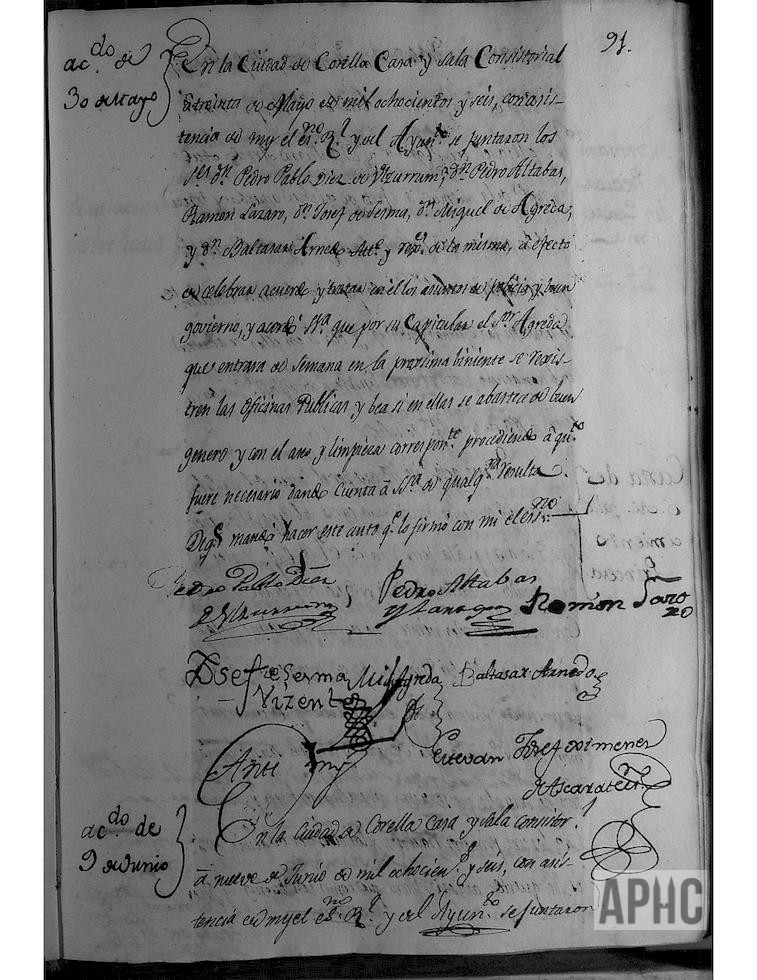 91.
acdo. de
30 de Mayo
En la Ciudad de Corella Casa y Sala Consistorial
â treinta de Mayo de mil ochocientos y seis, con asis-
tencia de my el esno. Rl. y del Ayunto. se juntaron los
Ses. Dn. Pedro Pablo Diez de Ulzurrum, Dn. Pedro Altabas,
Ramon Lazaro, Dn. Josef de Sesma, Dn. Miguel de Agreda,
y Dn. Baltasar Arnedo y de la misma, â efecto
de celebrar acuerdo y tratar en èl los asuntos de policia y buen
govierno, y acordó Sª. que por su Capitular el Sor. Agreda
que entrara de semana en la proxima biniente se rexis-
tren las oficinas Publicas y bea si en ellas se abastece de buen
genero y con el aseo y limpieza correspondte. procediendo â quto.
fuere necesario dando cuenta â Sª. de qualqra. resulta.
De qe. mandó hacer este auto qe. lo firmó con mi el esno.
Pedro Pablo Diez
de Ulzurrum
Pedro Altabas
y Lanagon
Ramon Lazaro
Josef de Sesma
Vizente
Migl Agreda
Baltasar Arnedo
Anti my
Estevan Josef Ximenez
de Ascarate
acdo. de
9 de Junio
En la Ciudad de Corella Casa y Sala consitorl.
â nueve de Junio de mil ochocientos y seis, con asis-
tencia de my el esno. Rl. y del Ayunto. se juntaron
APHC